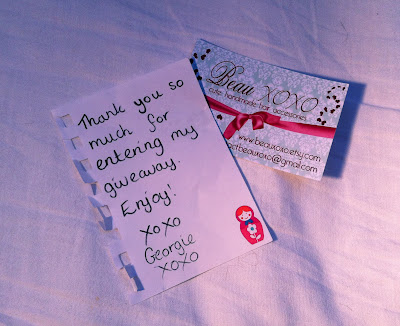 Thank you so
much for
entering my
giveaway.
Enjoy!
xoxo
Georgie
xoxo
Beau xoxo
cute, handmade hair accessories
www.beauxoxo.etsy.com
actbeauxoxo@gmail.com